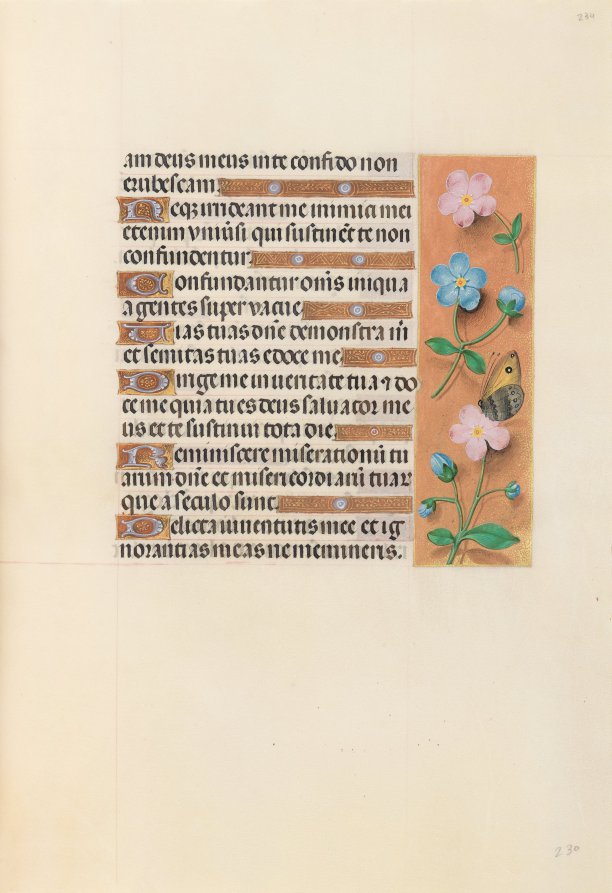 234
am deus meus in te confido non
erubescam.
Neqꝫ irrideant me inimici mei
etenim vniūsi qui sustinēt te non
confundentur.
Confundantur om̄s iniqua
agentes super vacue.
Uias tuas dn̄e demonstra m̄
et semitas tuas edoce me.
Dirige me in ueritate tua ⁊ do
ce me quia tu es deus saluator me
us et te sustinui tota die.
Reminiscere miserationū tu
arum dn̄e et misericordiarū tuar
que a seculo sunt.
Delicta iuuentutis mee et ig
norantias meas ne memineris.
230